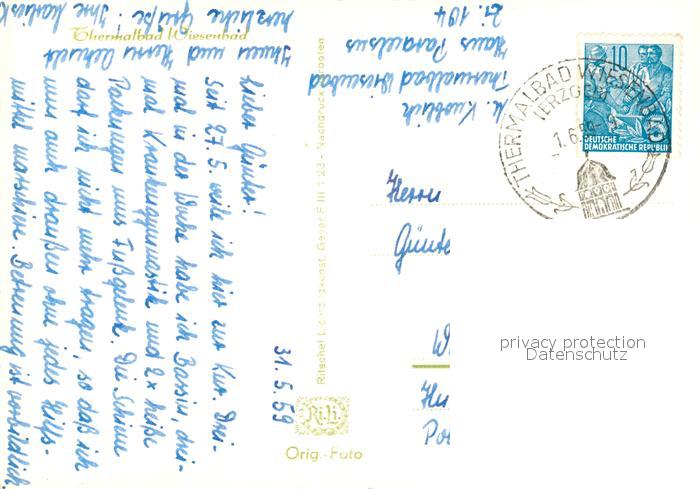 Thermalbad Wiesenbad
31. 5. 59
Lieber Günter!
Seit 27. 5. weile ich hier zur Kur. Drei-
mal in der Woche habe ich Bassin, drei-
mal Krankengymnastik und 2 x heiße
Packungen ums Fußgelenk. Die Schiene
darf ich nicht mehr tragen, so daß ich
nun auch draußen ohne jedes Hilfs-
mittel marschiere. Betreuung ist vorbildlich.
Ihnen und Herrn
herzliche Grüße! Ihre
M.
Thermalbad Wiesenbad
Haus Paracelsus
Zi. 104
Ritschel Lichtbildkunst, Geyer F III 1 23 - Nachdruck verboten
Ri.Li.
Orig.-Foto
THERMALBAD WIESENBAD
(ERZGEB)
1.6.59
10
DEUTSCHE
DEMOKRATISCHE REPUBLIK
Herrn
Günte
W
Po
privacy protection
Datenschutz